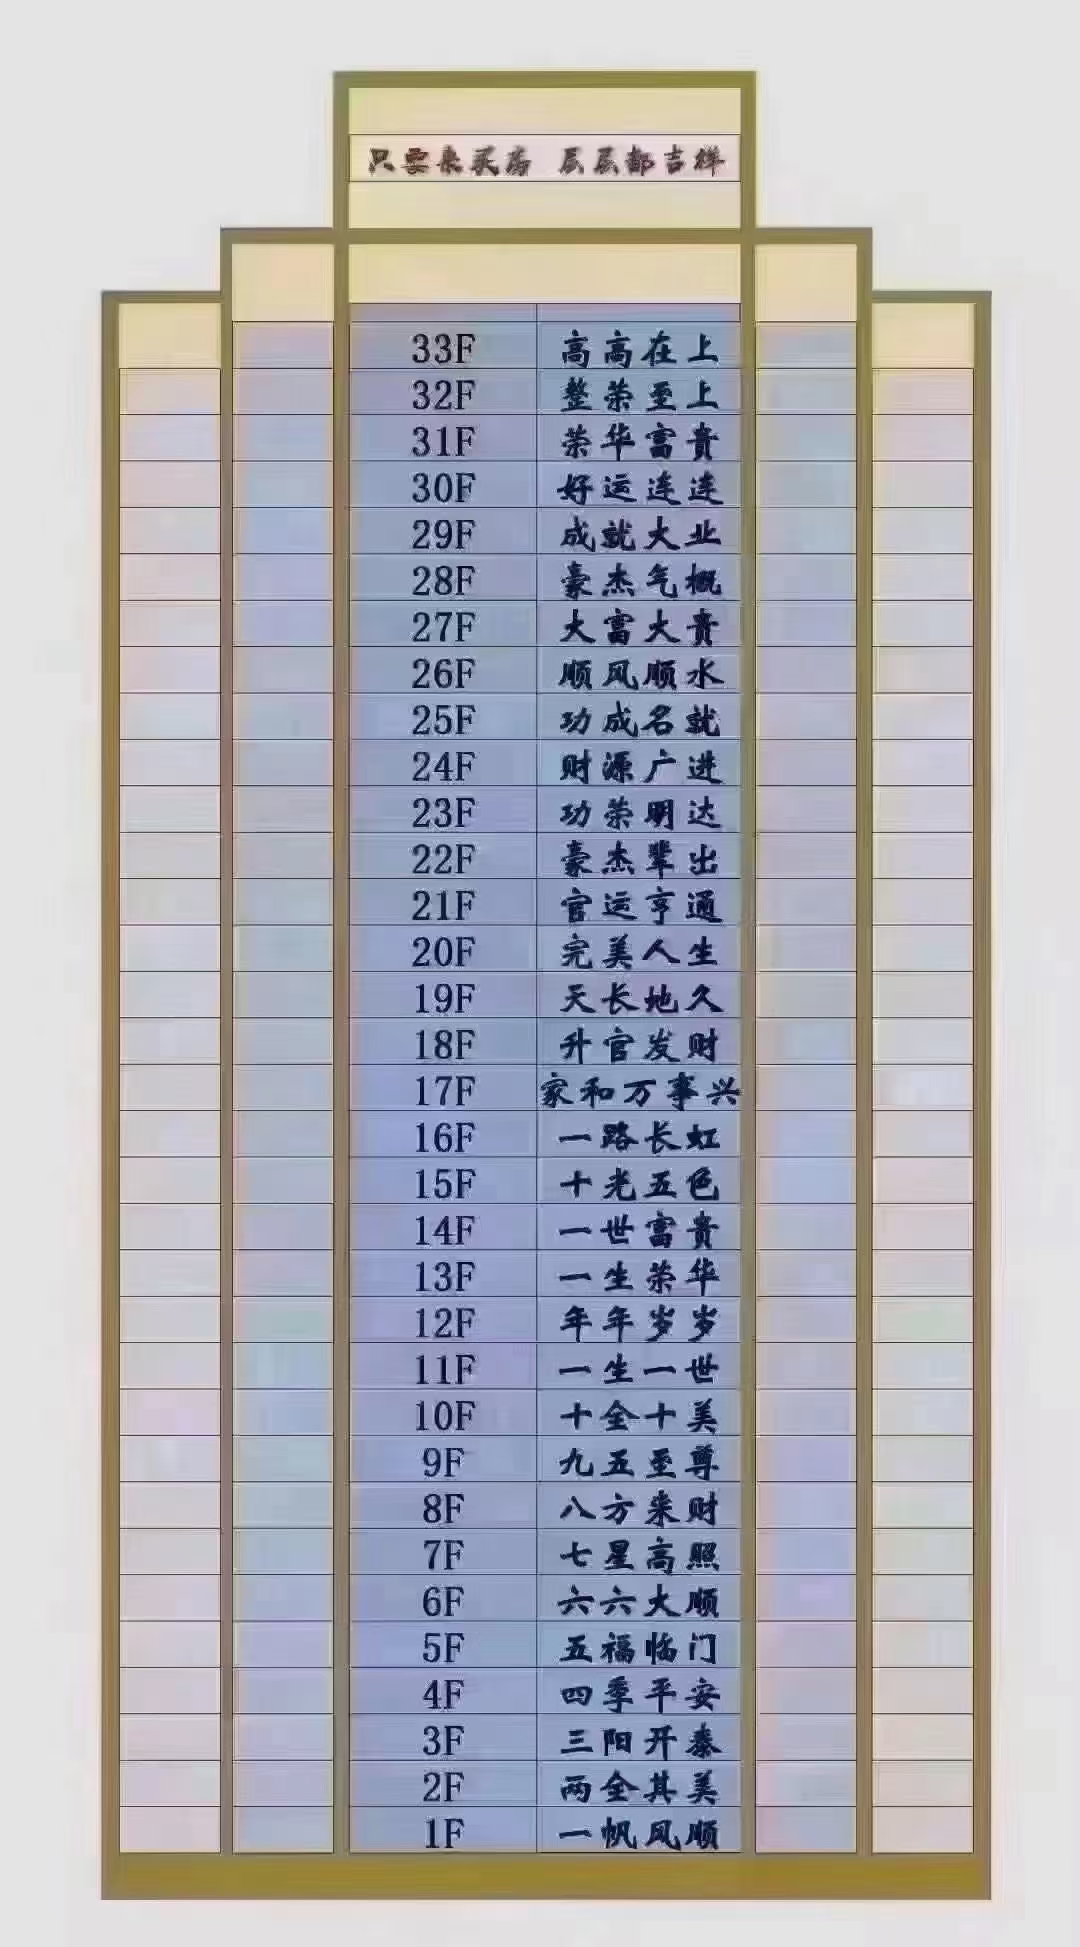 只要来买房 层层都吉祥
33F 高高在上
32F 整荣至上
31F 荣华富贵
30F 好运连连
29F 成就大业
28F 豪杰气概
27F 大富大贵
26F 顺风顺水
25F 功成名就
24F 财源广进
23F 功荣明达
22F 豪杰辈出
21F 官运亨通
20F 完美人生
19F 天长地久
18F 升官发财
17F 家和万事兴
16F 一路长虹
15F 十光五色
14F 一世富贵
13F 一生荣华
12F 年年岁岁
11F 一生一世
10F 十全十美
9F 九五至尊
8F 八方来财
7F 七星高照
6F 六六大顺
5F 五福临门
4F 四季平安
3F 三阳开泰
2F 两全其美
1F 一帆风顺